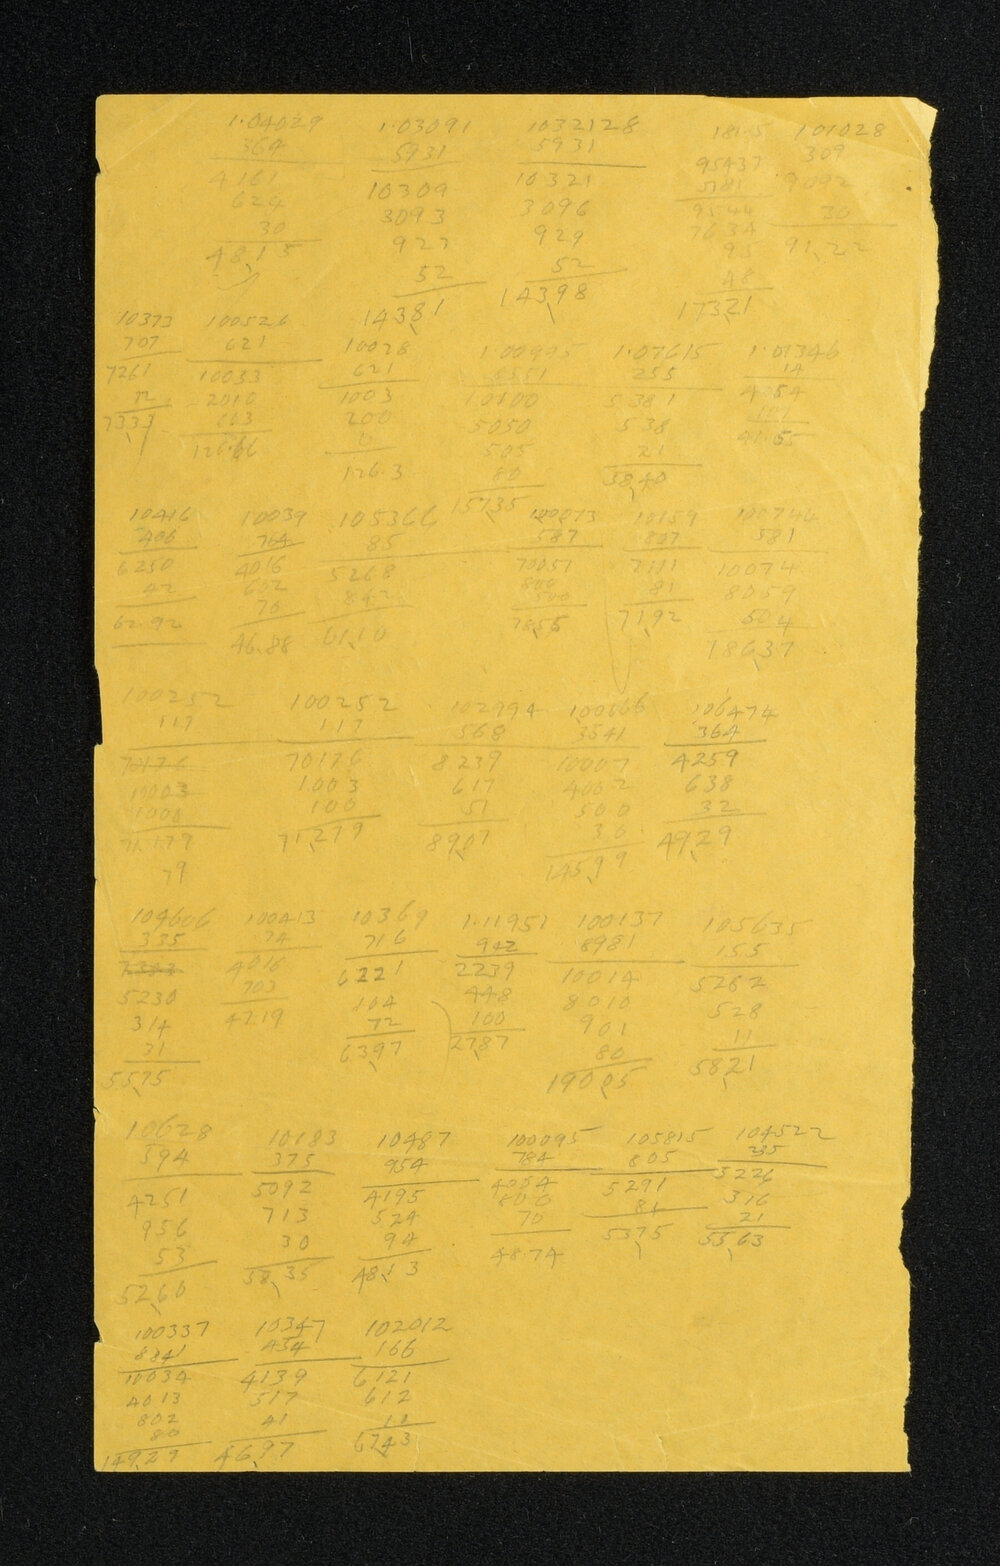 1.04029 1.03091 1032128 18115 101028
364 5931 5931 95437 309
4161 10309 10321 5181 9092
624 3093 3096 9544 30
30 927 929 7634 91.22
48.15 52 52 95
14381 14398 48
17321
10373 100526 10028 1.00995 1.07615 1.01346
707 621 621 255 14
7261 10033 1003 10100 5381 4054
72 2010 200 5050 538 101
7333 603 505 21 41.55
126.66 126.3 80 58.40
15735
10416 10039 105366 100073 10159 100746
406 764 85 587 807 581
6250 4016 5268 70051 7111 10074
42 602 842 800 81 8059
62.92 70 61.10 500 7192 504
46.88 7855 18637
100252 100252 102994 100066 106474
117 117 568 3541 364
70176 70176 8239 10007 4259
10003 1003 617 4002 638
1000 100 51 500 32
71.179 71279 8907 30 4929
79 14599
104606 100413 10369 1.11951 100137 105635
335 74 716 942 8981 155
5230 4016 6221 2239 10014 5282
314 703 104 448 8010 528
31 47.19 72 100 901 11
5575 6397 2787 80 5821
19005
10628 10183 10487 100095 105815 104522
594 375 954 784 805 235
4251 5092 4195 4004 5291 5226
956 713 524 800 84 316
53 30 94 70 5375 21
5260 58.35 4813 48.74 5563
100337 10347 102012
8841 454 166
10034 4139 6121
4013 517 612
802 41 11
80 46.97 6743
149.29